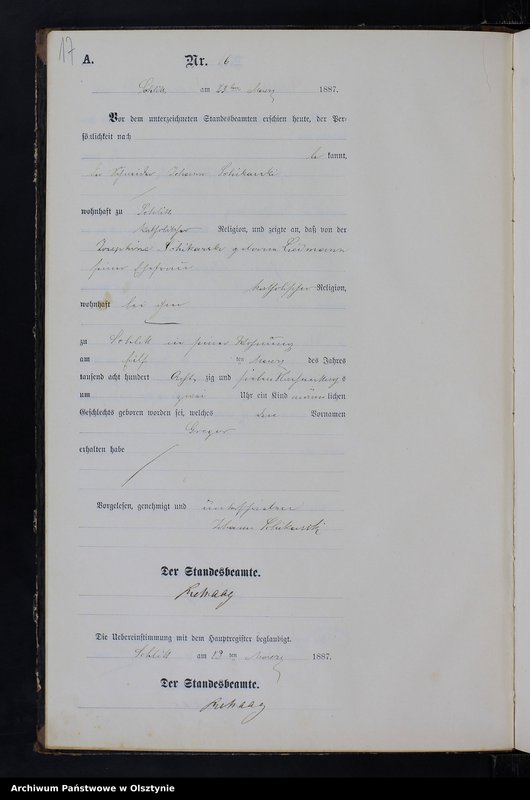 17
A.
Nr. 6
Schlitt am ten März 1887.
Vor dem unterzeichneten Standesbeamten erschien heute, der Per-
sönlichkeit nach
be kannt,
der Schneider Johann
wohnhaft zu Schlitt
katholischer Religion, und zeigte an, daß von der
Josephine geborene
seiner Ehefrau
katholischer Religion,
wohnhaft bei ihm
zu Schlitt in seiner Wohnung
am ten März des Jahres
tausend acht hundert Acht zig und sieben Nachmittags
um zwei Uhr ein Kind männ lichen
Geschlechts geboren worden sei, welches den Vornamen
Gregor
erhalten habe
Vorgelesen, genehmigt und unterschrieben
Johann
Der Standesbeamte.
Rehaag
Die Uebereinstimmung mit dem Hauptregister beglaubigt.
Schlitt am ten März 1887.
Der Standesbeamte.
Rehaag
Archiwum Państwowe w Olsztynie